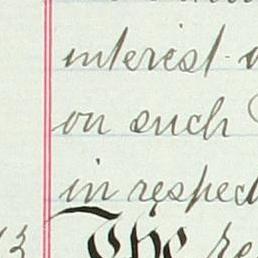 interest
on such
in respec
The re
13